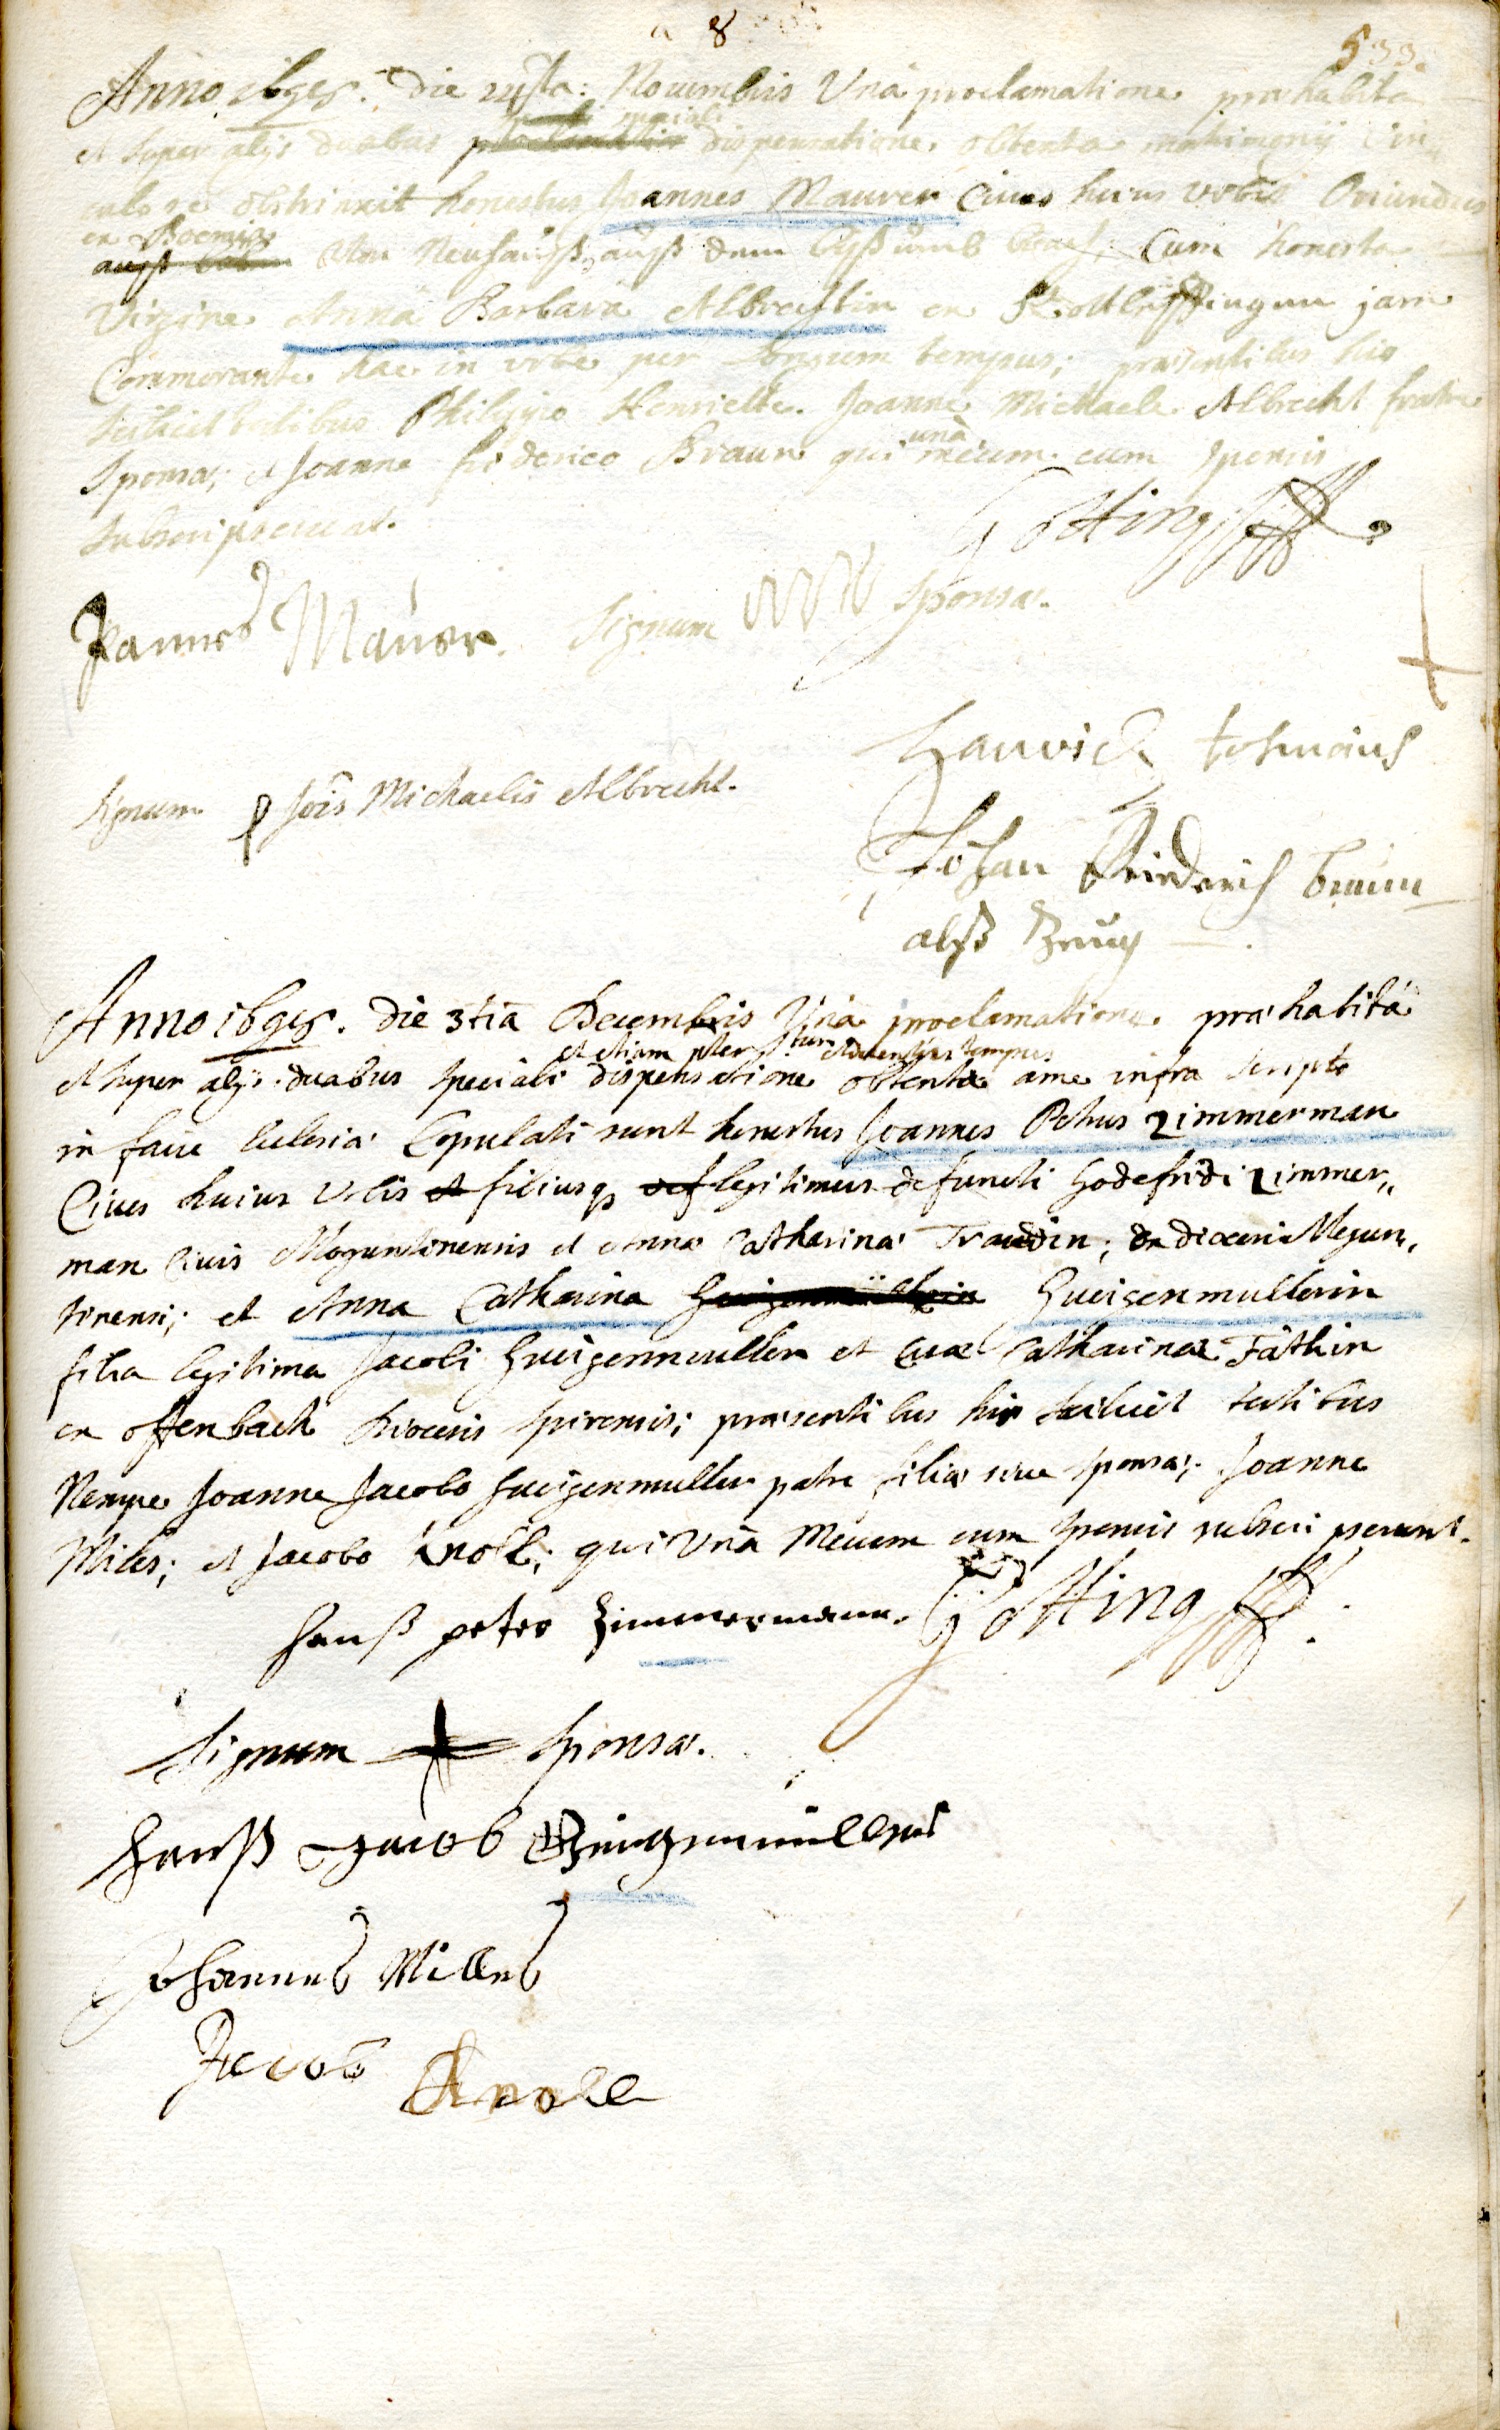 8
533
Anno 1695. Die 21sta: Novembris Una proclamatione præhabita
et super alijs duabus speciali dispensatione obtenta matrimonij vin„
culo se obstrinxit honestus Joannes Maurer Civis huius Urbis Oriundus
ex Boemia von Neuhauß, auß dem Cum honesta
Virgine Anna Barbara Albrechtin ex jam
Commorante hac in urbe per longum tempus; præsentibus hic
scilicet testibus Philippo Henriette. Joanne Michaele Albrecht fratre
Sponsæ; et Joanne friderico Braun qui unà mecum cum sponsis
subscripserunt.
Götting
Johannes Maurer. Signum Sponsæ.
Signum Jois Michaelis Albrecht.
Johan Friderich braun
alß Zeug
Anno 1695. Die 3tia Decembris Una proclamatione præhabitá
et etiam tempus
et super alijs duabus speciali dispensatione obtenta a me infra scripto
in facie Ecclesiæ Copulati sunt honestus Joannes Petrus Zimmerman
Civis huius Urbis et filiusq legitimus defuncti Godefridi Zimmer„
man Civis Moguntinensis et Annæ Catharinæ Traudin; ex diœcesi Mogun„
tinensi; et Anna Catharina Gueigenmullerin
filia legitima Jacobi Gueigenmuller et Evæ Catharinæ Fäthin
ex offenbach Diœcesis spirensis; præsentibus hic scilicet testibus
Nempe Joanne Jacobo Gueigenmuller patre filiæ sive sponsæ; Joanne
Miles; et Jacobo Knoll; qui Unà Mecum cum sponsis subscripserunt.
Hanß peter Zimmermann. Götting
Signum Sponsæ.
Hanß Jacob Geigenmüller
Johannes Milles
Jacob Knoll